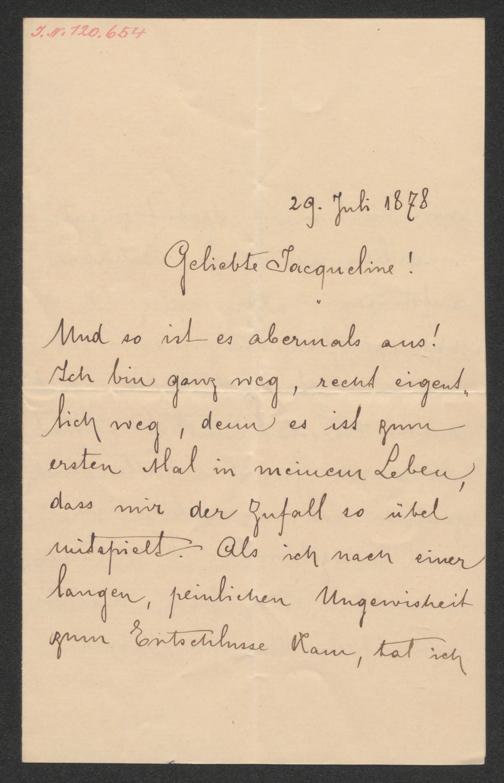 J.N. 120.654
29. Juli 1878
Geliebte Jacqueline!
Und so ist es abermals aus!
Ich bin ganz weg, recht eigent„
lich weg, denn es ist zum
ersten Mal in meinem Leben,
dass mir der Zufall so übel
mitspielt. Als ich nach einer
langen, peinlichen Ungewisheit
zum Entschlusse kam, tat ich